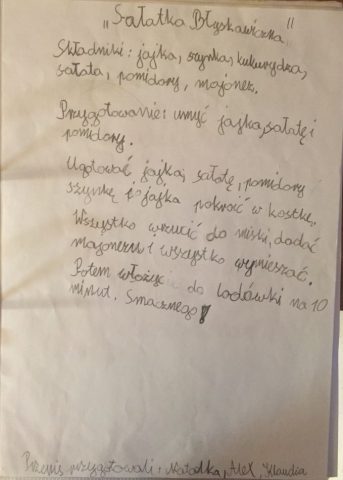 „Sałatka Błyskawiczna"
Składniki: jajka, szynka, kukurydza,
sałata, pomidory, majonez.
Przygotowanie: umyć jajka, sałatę i
pomidory.
Ugotować jajka, sałatę, pomidory
szynkę i jajka pokroić w kostkę.
Wszystko wrzucić do miski, dodać
majonezu i wszystko wymieszać.
Potem włożyć do lodówki na 10
minut. Smacznego!
Przepis przygotowali: Natalka, Alex, Klaudia